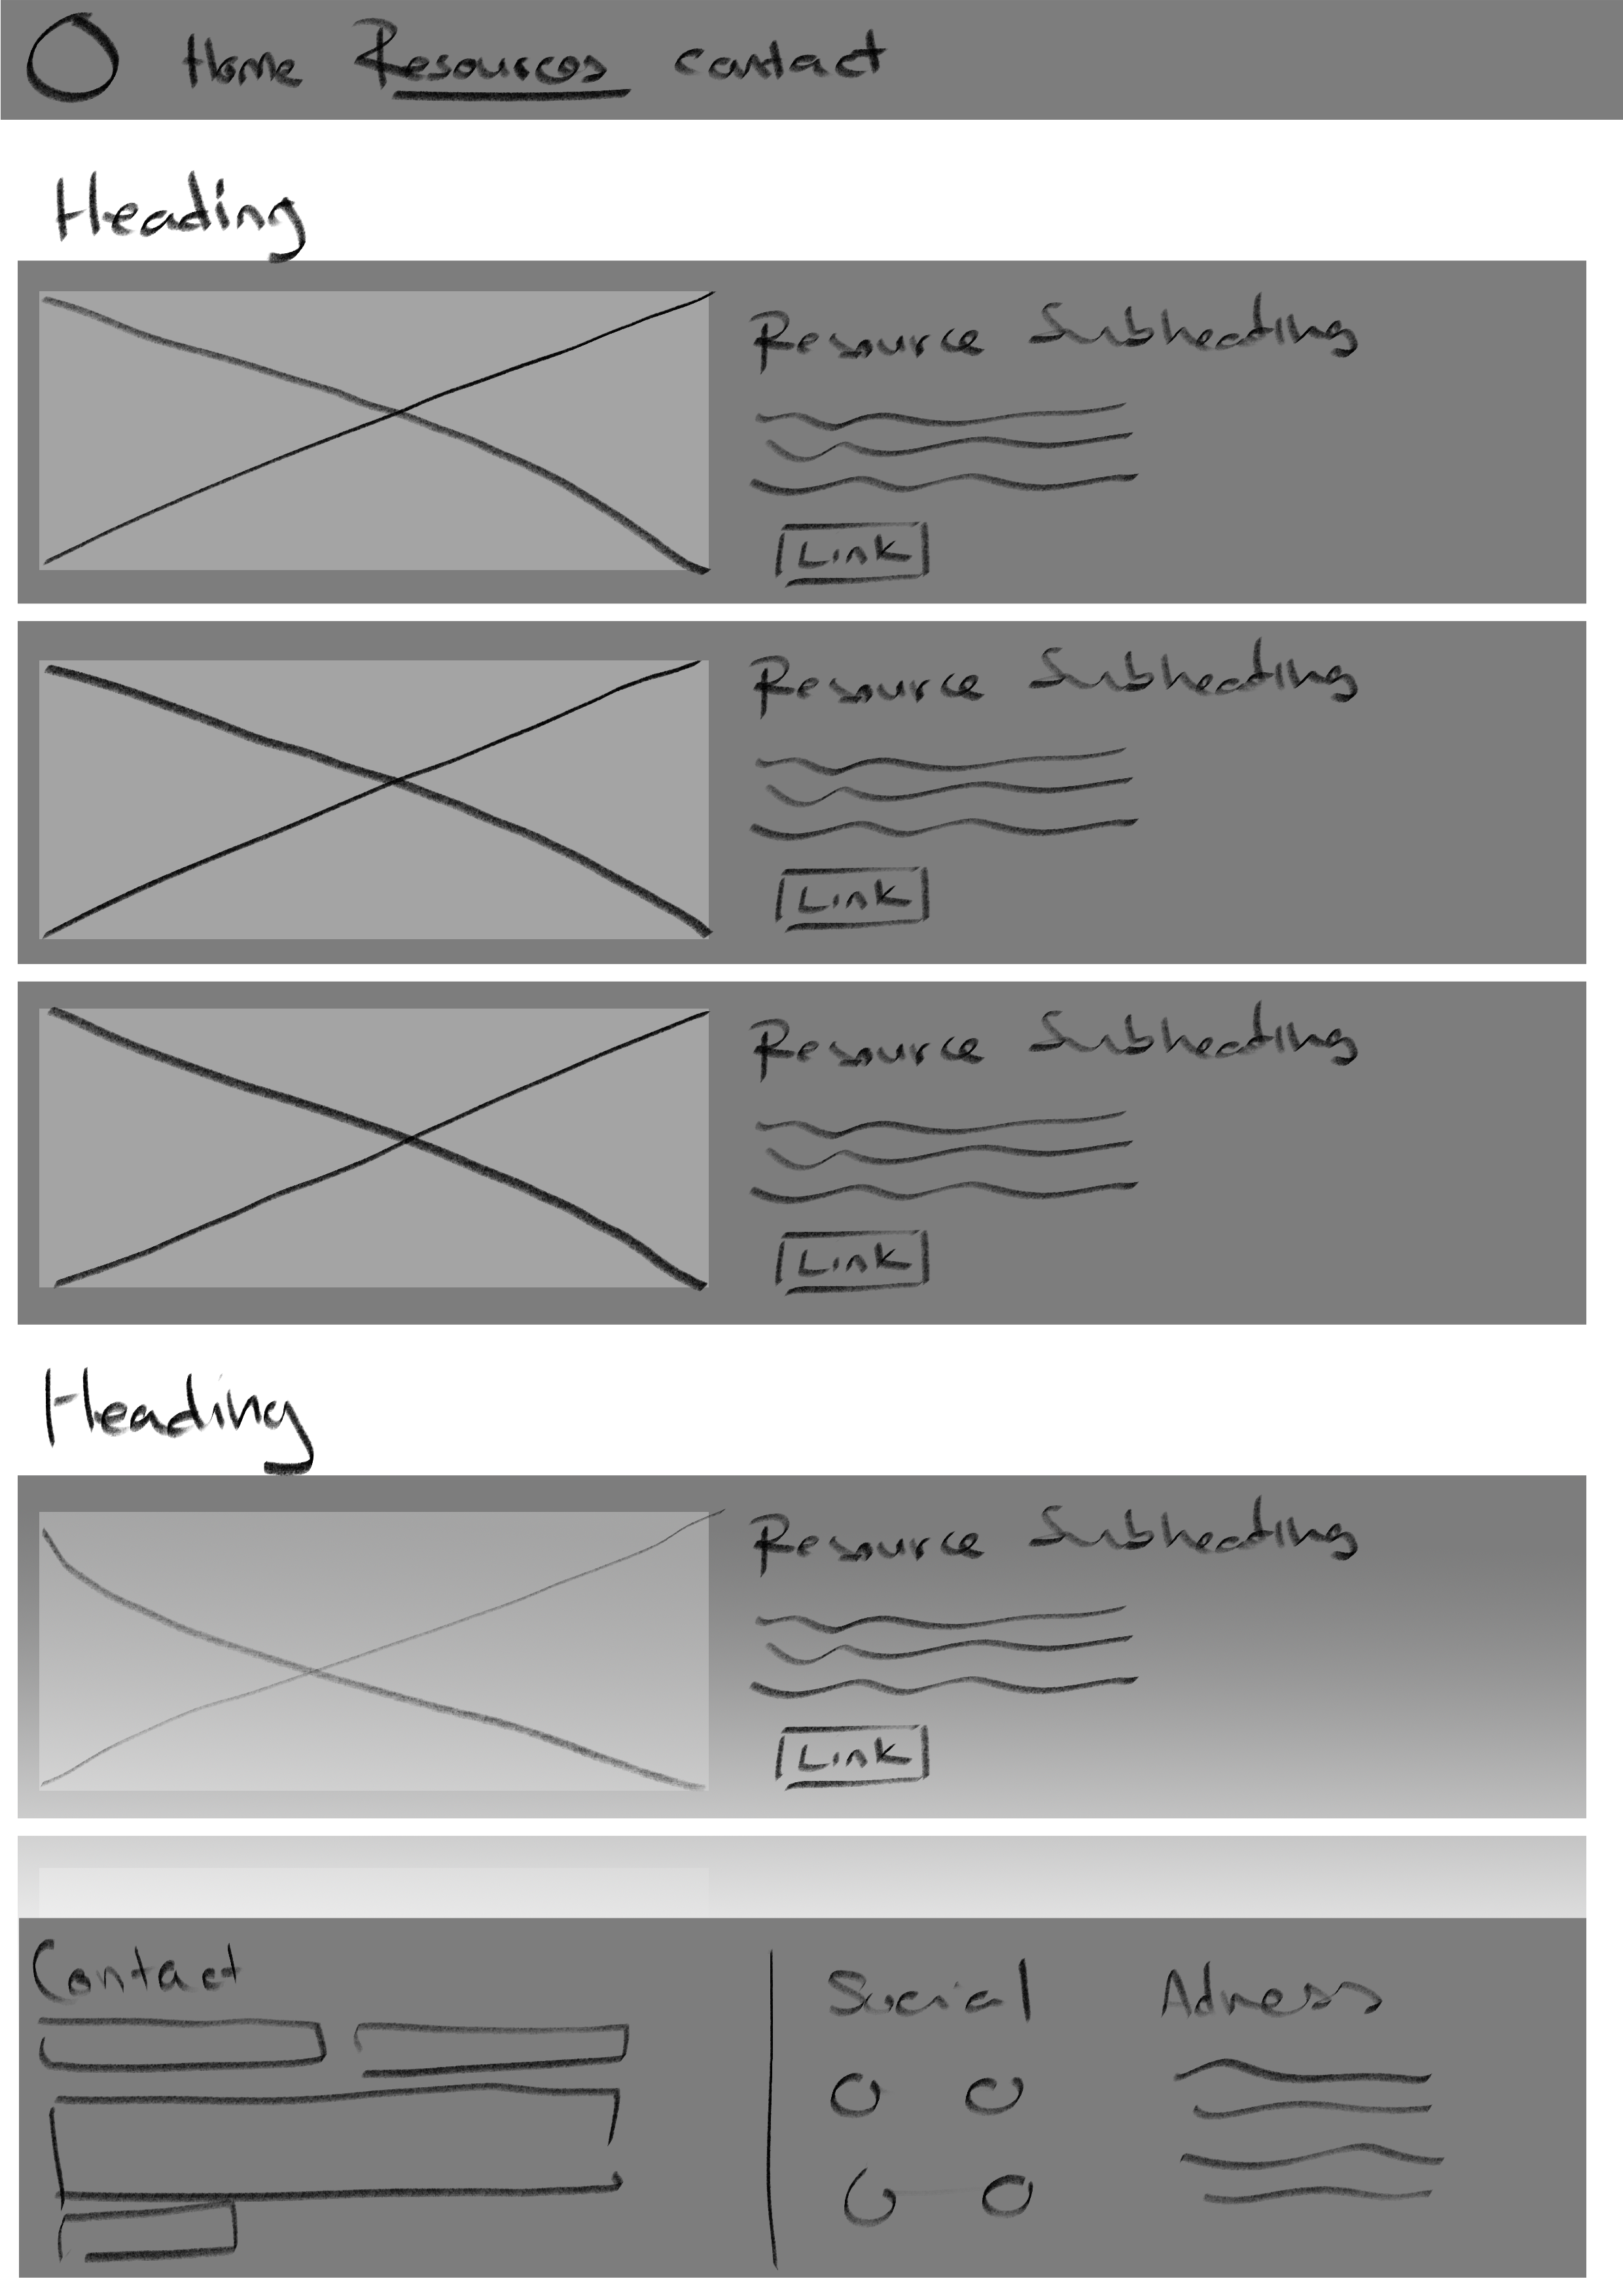 Home Resources contact
Heading
Resource Subheading
Link
Resource Subheading
Link
Resource Subheading
Link
Heading
Resource Subheading
Link
Contact
Social
Adress